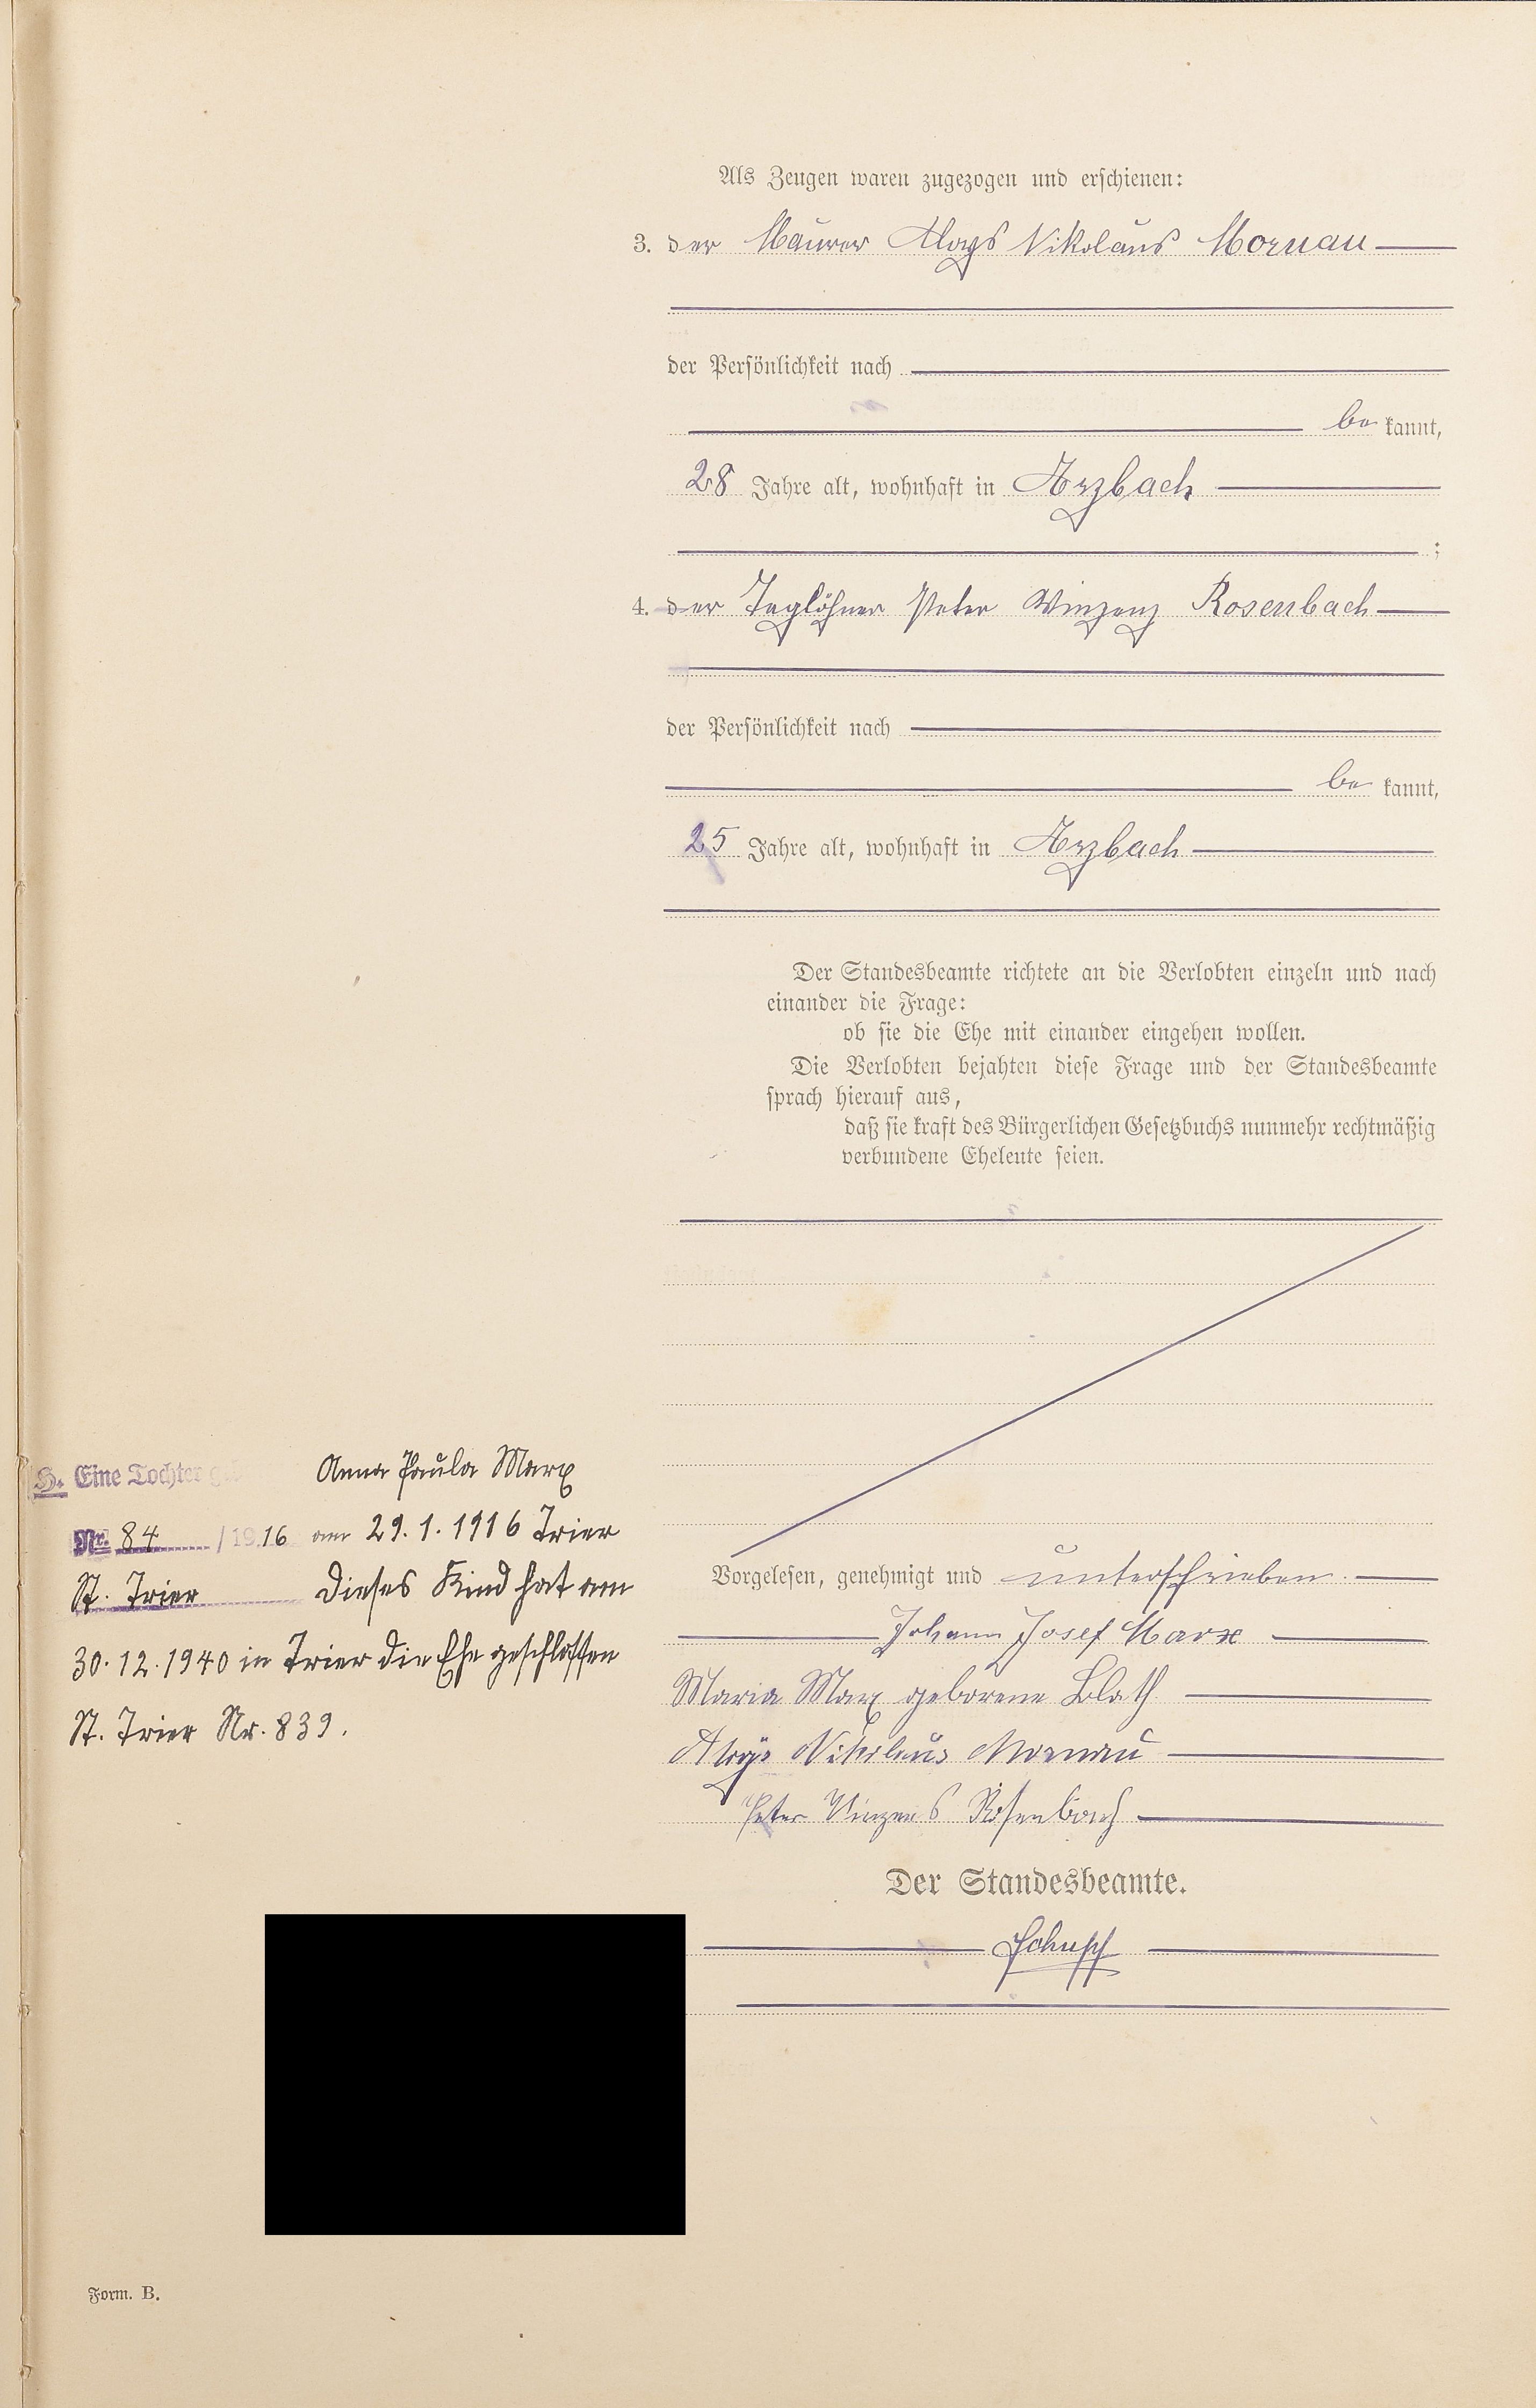 Als Zeugen waren zugezogen und erschienen:
3. der Maurer Aloys Nikolaus Mornau
der Persönlichkeit nach
be kannt,
28 Jahre alt, wohnhaft in Arzbach
;
4. der Taglöhner Peter Vinzenz Rosenbach
der Persönlichkeit nach
be kannt,
25 Jahre alt, wohnhaft in Arzbach
Der Standesbeamte richtete an die Verlobten einzeln und nach
einander die Frage:
ob sie die Ehe mit einander eingehen wollen.
Die Verlobten bejahten diese Frage und der Standesbeamte
sprach hierauf aus,
daß sie kraft des Bürgerlichen Gesetzbuchs nunmehr rechtmäßig
verbundene Eheleute seien.
Vorgelesen, genehmigt und unterschrieben.
Johann Josef Marx
Maria Marx geborene Blath
Aloys Nikolaus Mornau
Peter Vinzens Rosenbach
Der Standesbeamte.
Eine Tochter Anna Paula Marx
Nr. 84 / 1916 am 29.1.1916 Trier
St. Trier Dieses Kind hat am
30.12.1940 in Trier die Ehe geschlossen
St. Trier Nr. 839.
Form. B.